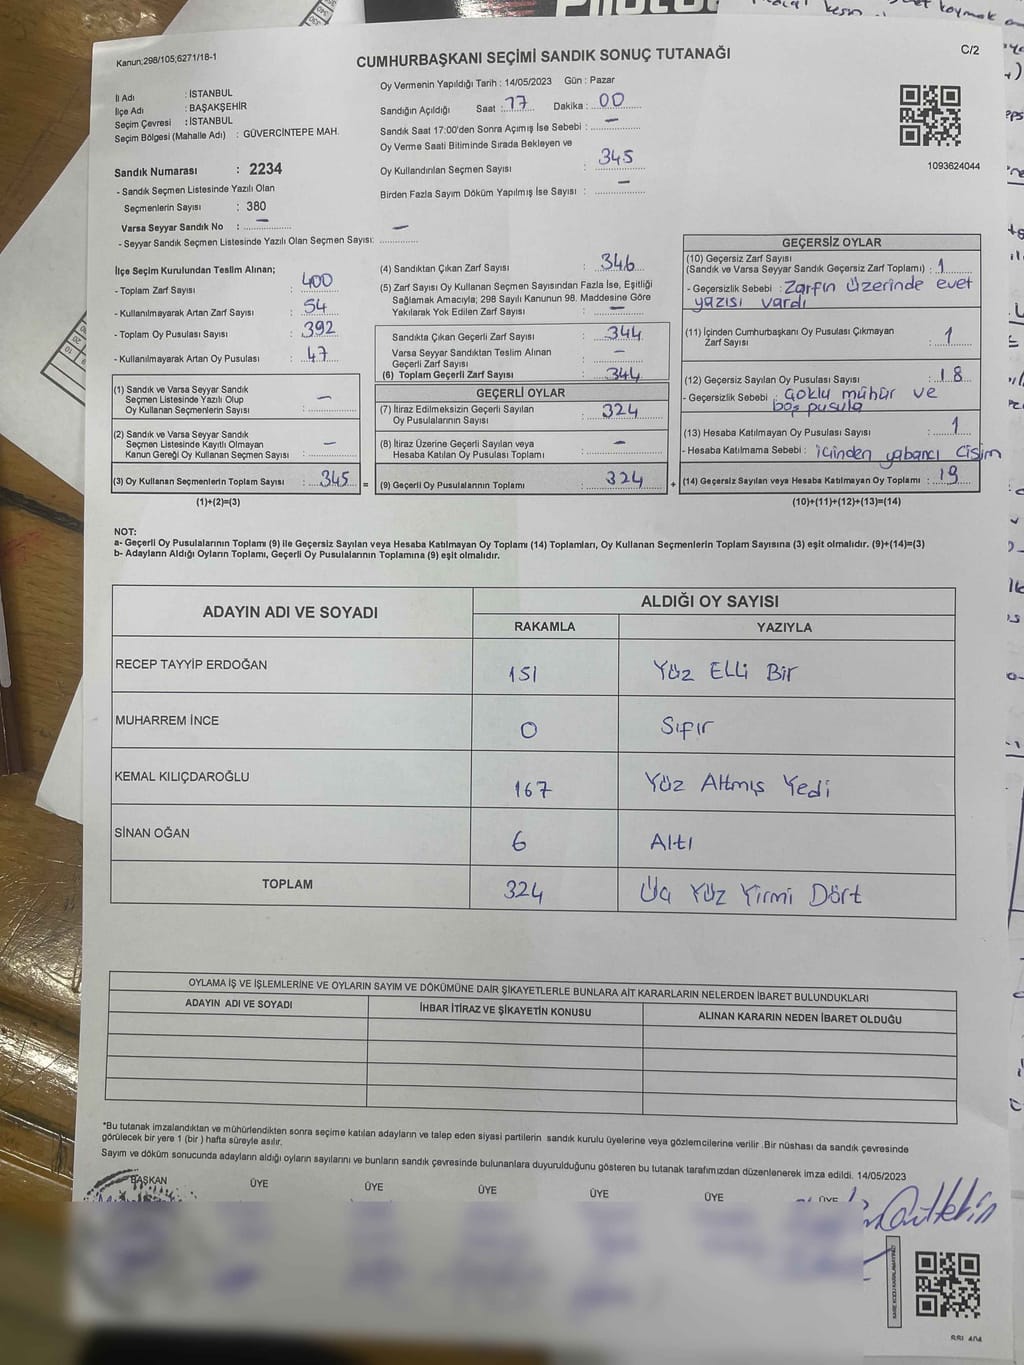 Kanun;298/105;6271/18-1
CUMHURBAŞKANI SEÇİMİ SANDIK SONUÇ TUTANAĞI
C/2
İl Adı : İSTANBUL
İlçe Adı : BAŞAKŞEHİR
Seçim Çevresi : İSTANBUL
Seçim Bölgesi (Mahalle Adı) : GÜVERCİNTEPE MAH.
Sandık Numarası : 2234
- Sandık Seçmen Listesinde Yazılı Olan
Seçmenlerin Sayısı : 380
Varsa Seyyar Sandık No : —
- Seyyar Sandık Seçmen Listesinde Yazılı Olan Seçmen Sayısı: —
Oy Vermenin Yapıldığı Tarih : 14/05/2023 Gün : Pazar
Sandığın Açıldığı Saat : 17 Dakika : 00
Sandık Saat 17:00'den Sonra Açımış İse Sebebi : —
Oy Verme Saati Bitiminde Sırada Bekleyen ve
Oy Kullandırılan Seçmen Sayısı : 345
Birden Fazla Sayım Döküm Yapılmış İse Sayısı : —
1093624044
İlçe Seçim Kurulundan Teslim Alınan;
- Toplam Zarf Sayısı : 400
- Kullanılmayarak Artan Zarf Sayısı : 54
- Toplam Oy Pusulası Sayısı : 392
- Kullanılmayarak Artan Oy Pusulası : 47
(1) Sandık ve Varsa Seyyar Sandık
Seçmen Listesinde Yazılı Olup
Oy Kullanan Seçmenlerin Sayısı : —
(2) Sandık ve Varsa Seyyar Sandık
Seçmen Listesinde Kayıtlı Olmayan
Kanun Gereği Oy Kullanan Seçmen Sayısı : —
(3) Oy Kullanan Seçmenlerin Toplam Sayısı : 345 =
(1)+(2)=(3)
(4) Sandıktan Çıkan Zarf Sayısı : 346
(5) Zarf Sayısı Oy Kullanan Seçmen Sayısından Fazla İse, Eşitliği
Sağlamak Amacıyla; 298 Sayılı Kanunun 98. Maddesine Göre
Yakılarak Yok Edilen Zarf Sayısı : —
Sandıkta Çıkan Geçerli Zarf Sayısı : 344
Varsa Seyyar Sandıktan Teslim Alınan
Geçerli Zarf Sayısı : —
(6) Toplam Geçerli Zarf Sayısı : 344
GEÇERLİ OYLAR
(7) İtiraz Edilmeksizin Geçerli Sayılan
Oy Pusulalarının Sayısı : 324
(8) İtiraz Üzerine Geçerli Sayılan veya
Hesaba Katılan Oy Pusulası Toplamı : —
(9) Geçerli Oy Pusulalarının Toplamı : 324 +
GEÇERSİZ OYLAR
(10) Geçersiz Zarf Sayısı
(Sandık ve Varsa Seyyar Sandık Geçersiz Zarf Toplamı) : 1
- Geçersizlik Sebebi : Zarfın Üzerinde evet
yazısı vardı
(11) İçinden Cumhurbaşkanı Oy Pusulası Çıkmayan
Zarf Sayısı : 1
(12) Geçersiz Sayılan Oy Pusulası Sayısı : 18
- Geçersizlik Sebebi : Çoklu mühür ve
boş pusula
(13) Hesaba Katılmayan Oy Pusulası Sayısı : 1
- Hesaba Katılmama Sebebi : içinden yabancı cisim
(14) Geçersiz Sayılan veya Hesaba Katılmayan Oy Toplamı : 19
(10)+(11)+(12)+(13)=(14)
NOT:
a- Geçerli Oy Pusulalarının Toplamı (9) ile Geçersiz Sayılan veya Hesaba Katılmayan Oy Toplamı (14) Toplamları, Oy Kullanan Seçmenlerin Toplam Sayısına (3) eşit olmalıdır. (9)+(14)=(3)
b- Adayların Aldığı Oyların Toplamı, Geçerli Oy Pusulalarının Toplamına (9) eşit olmalıdır.
ADAYIN ADI VE SOYADI
ALDIĞI OY SAYISI
RAKAMLA YAZIYLA
RECEP TAYYİP ERDOĞAN 151 Yüz ELLi Bir
MUHARREM İNCE 0 Sıfır
KEMAL KILIÇDAROĞLU 167 Yüz Altmış Yedi
SİNAN OĞAN 6 Altı
TOPLAM 324 Üç Yüz Yirmi Dört
OYLAMA İŞ VE İŞLEMLERİNE VE OYLARIN SAYIM VE DÖKÜMÜNE DAİR ŞİKAYETLERLE BUNLARA AİT KARARLARIN NELERDEN İBARET BULUNDUKLARI
ADAYIN ADI VE SOYADI İHBAR İTİRAZ VE ŞİKAYETİN KONUSU ALINAN KARARIN NEDEN İBARET OLDUĞU
*Bu tutanak imzalandıktan ve mühürlendikten sonra seçime katılan adayların ve talep eden siyasi partilerin sandık kurulu üyelerine veya gözlemcilerine verilir .Bir nüshası da sandık çevresinde
görülecek bir yere 1 (bir ) hafta süreyle asılır.
Sayım ve döküm sonucunda adayların aldığı oyların sayılarını ve bunların sandık çevresinde bulunanlara duyurulduğunu gösteren bu tutanak tarafımızdan düzenlenerek imza edildi. 14/05/2023
BAŞKAN ÜYE ÜYE ÜYE ÜYE ÜYE ÜYE